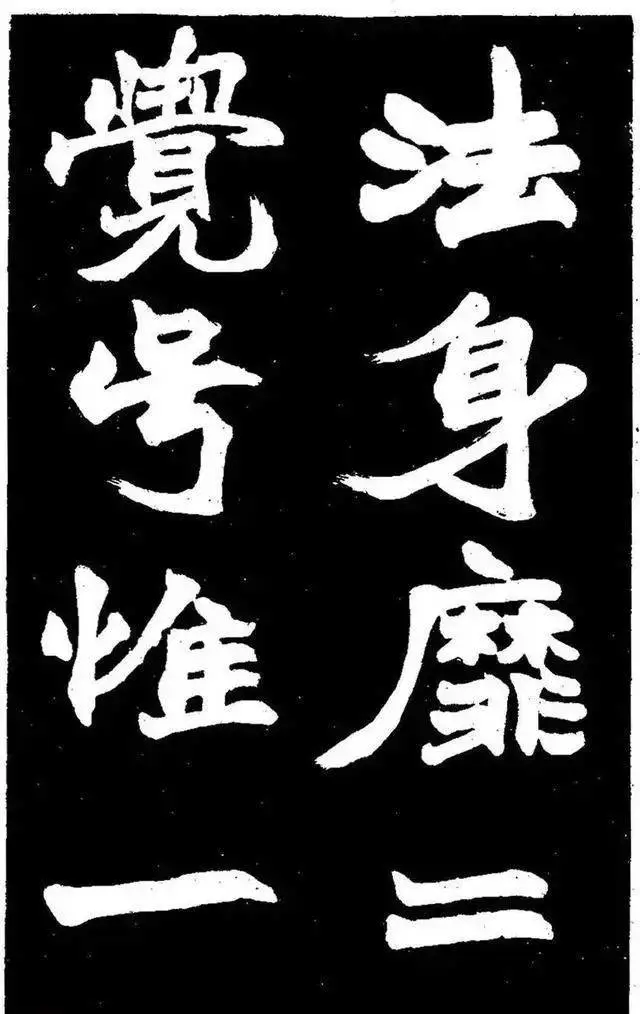 法身靡二
覺号惟一